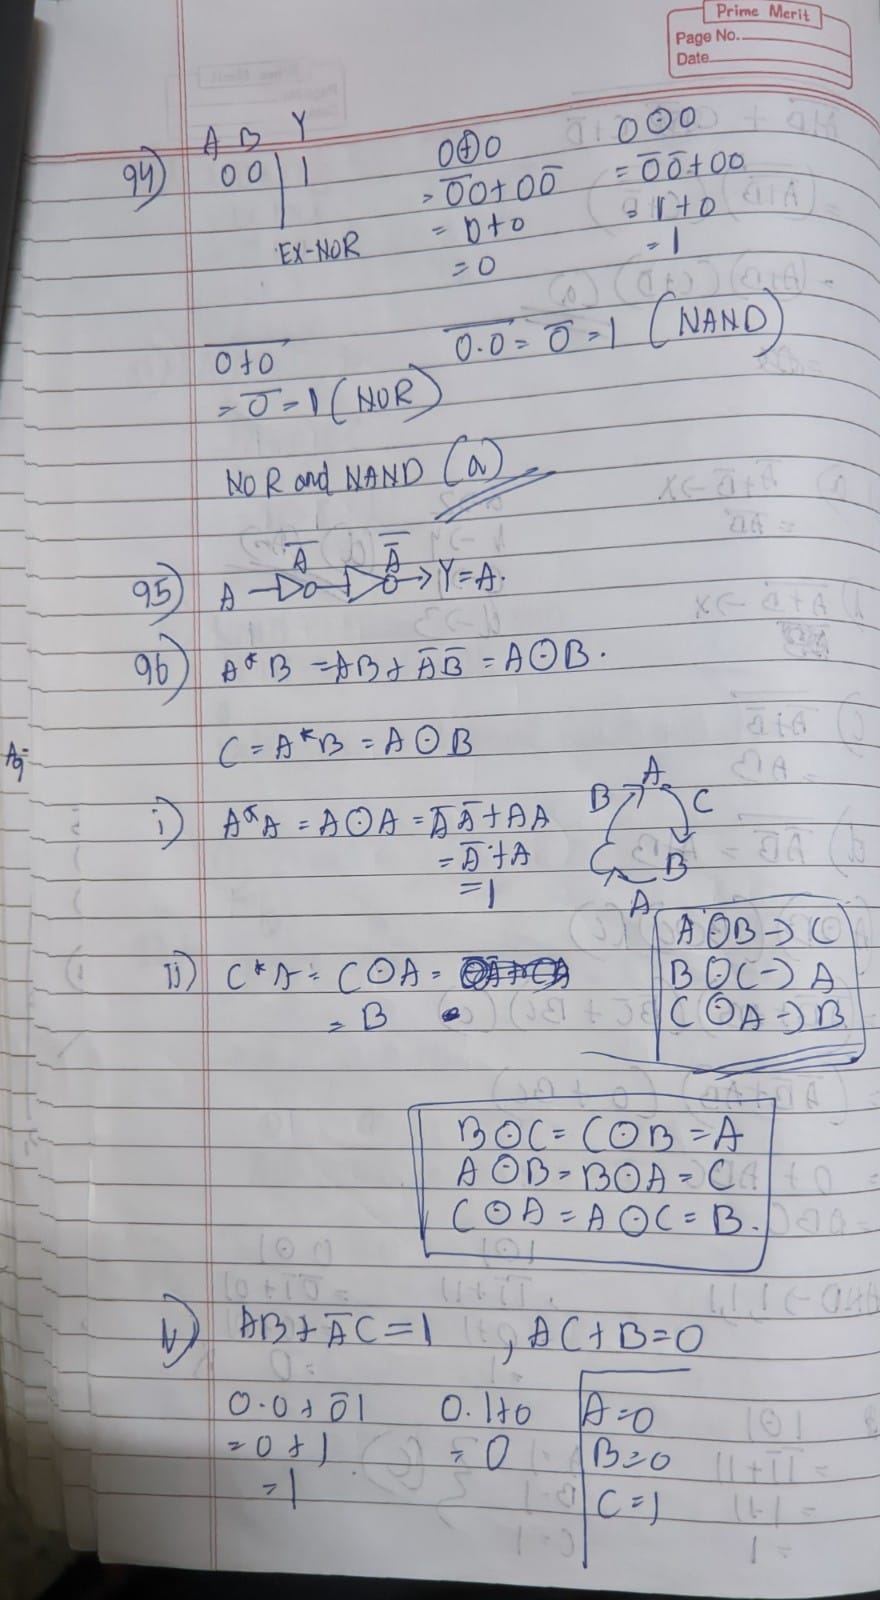 Prime Merit
Page No.
Date
A B Y
94) 0 0 | 1
EX-NOR
0⊕0
= 0̅0+00̅
= 0+0
= 0
0⊙0
= 0̅0̅+00
= 1+0
= 1
\overline{0+0}
= 0̅ = 1 (NOR)
\overline{0.0} = 0̅ = 1 (NAND)
NOR and NAND (a)
A̅ A̿
95) A → Y=A.
96) A*B = AB + A̅B̅ = A⊙B.
C = A*B = A⊙B
i) A*A = A⊙A = A̅A̅+AA
= A̅+A
= 1
A
B C
C B
A
A⊙B→C
B⊙C→A
C⊙A→B
ii) C*A = C⊙A =
= B
B⊙C = C⊙B = A
A⊙B = B⊙A = C
C⊙A = A⊙C = B.
AB + A̅C = 1 , AC+B=0
0.0+0̅1 0.1+0 A=0
= 0+1 = 0 B=0
= 1 C=1